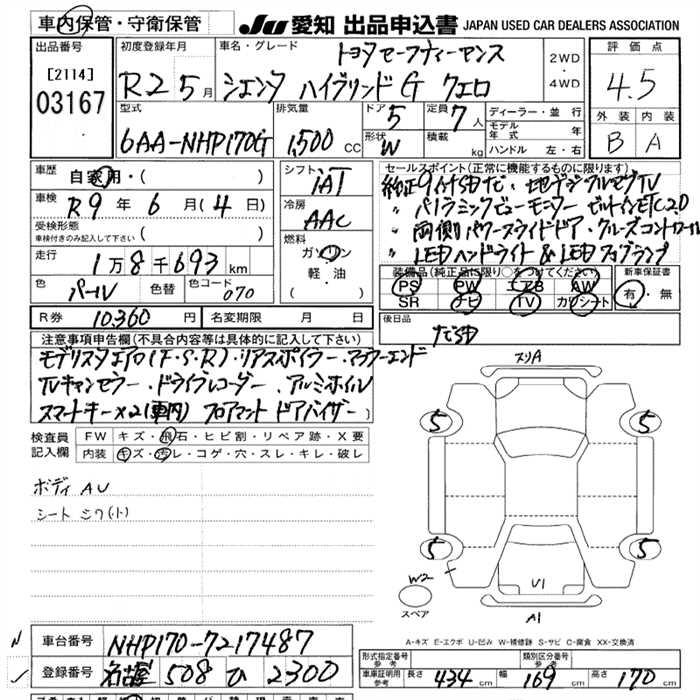 車内保管・守衛保管
JU 愛知 出品申込書 JAPAN USED CAR DEALERS ASSOCIATION
出品番号
[2114]
03167
初度登録年月
R2 5月
車名・グレード
トヨタセーフティーセンス
シエンタ ハイブリッドG クエロ
2WD
・
4WD
評価点
4.5
外装 内装
B A
型式
6AA-NHP170G
排気量
1,500 CC
ドア
5
形状
W
定員
7人
積載
kg
ディーラー・並行
モデル年式 年
ハンドル 左・右
車歴
自家用・( )
車検
R9年6月(4日)
受検形態
車検付きのみ記入して下さい ( )
走行
1万8千693km
色
パール
色替
色コード
070
シフト
iAT
冷房
AAC
燃料
ガソリン
軽・油
( )
セールスポイント(正常に機能するものに限ります)
純正9インチSDナビ・地デジフルセグTV
〃 パノラミックビューモニター ビルトインETC2.0
〃 両側パワースライドドア・クルーズコントロール
〃 LEDヘッドライト & LEDフォグランプ
装備品(純正品に限り○をつけてください)
PS PW エアB AW
SR ナビ TV カワシート
新車保証書
有・無
R券
10,360円
名変期限 月 日
後日品
ナビSD
注意事項申告欄(不具合内容等は具体的に記入して下さい)
モデリスタエアロ(F・S・R)・リアスポイラー・マフラーエンド
TVキャンセラー・ドライブレコーダー・アルミホイル
スマートキー×2(車内) フロアマット ドアバイザー
検査員
記入欄
FW キズ・飛石・ヒビ割・リペア跡・X要
内装 キズ・汚レ・コゲ・穴・スレ・キレ・破レ
ボディ AU
シート シワ(小)
スリA
5 5
5 5
W2
V1
A1
スペア
A-キズ E-エクボ U-凹み W-補修跡 S-サビ C-腐食 XX-交換済
車台番号
NHP170-7217487
登録番号
名古屋 508 ひ 2300
形式指定番号
参考
類別区分番号
参考
車庫証明用
参考
長さ 434 cm 幅 169 cm 高さ 170 cm